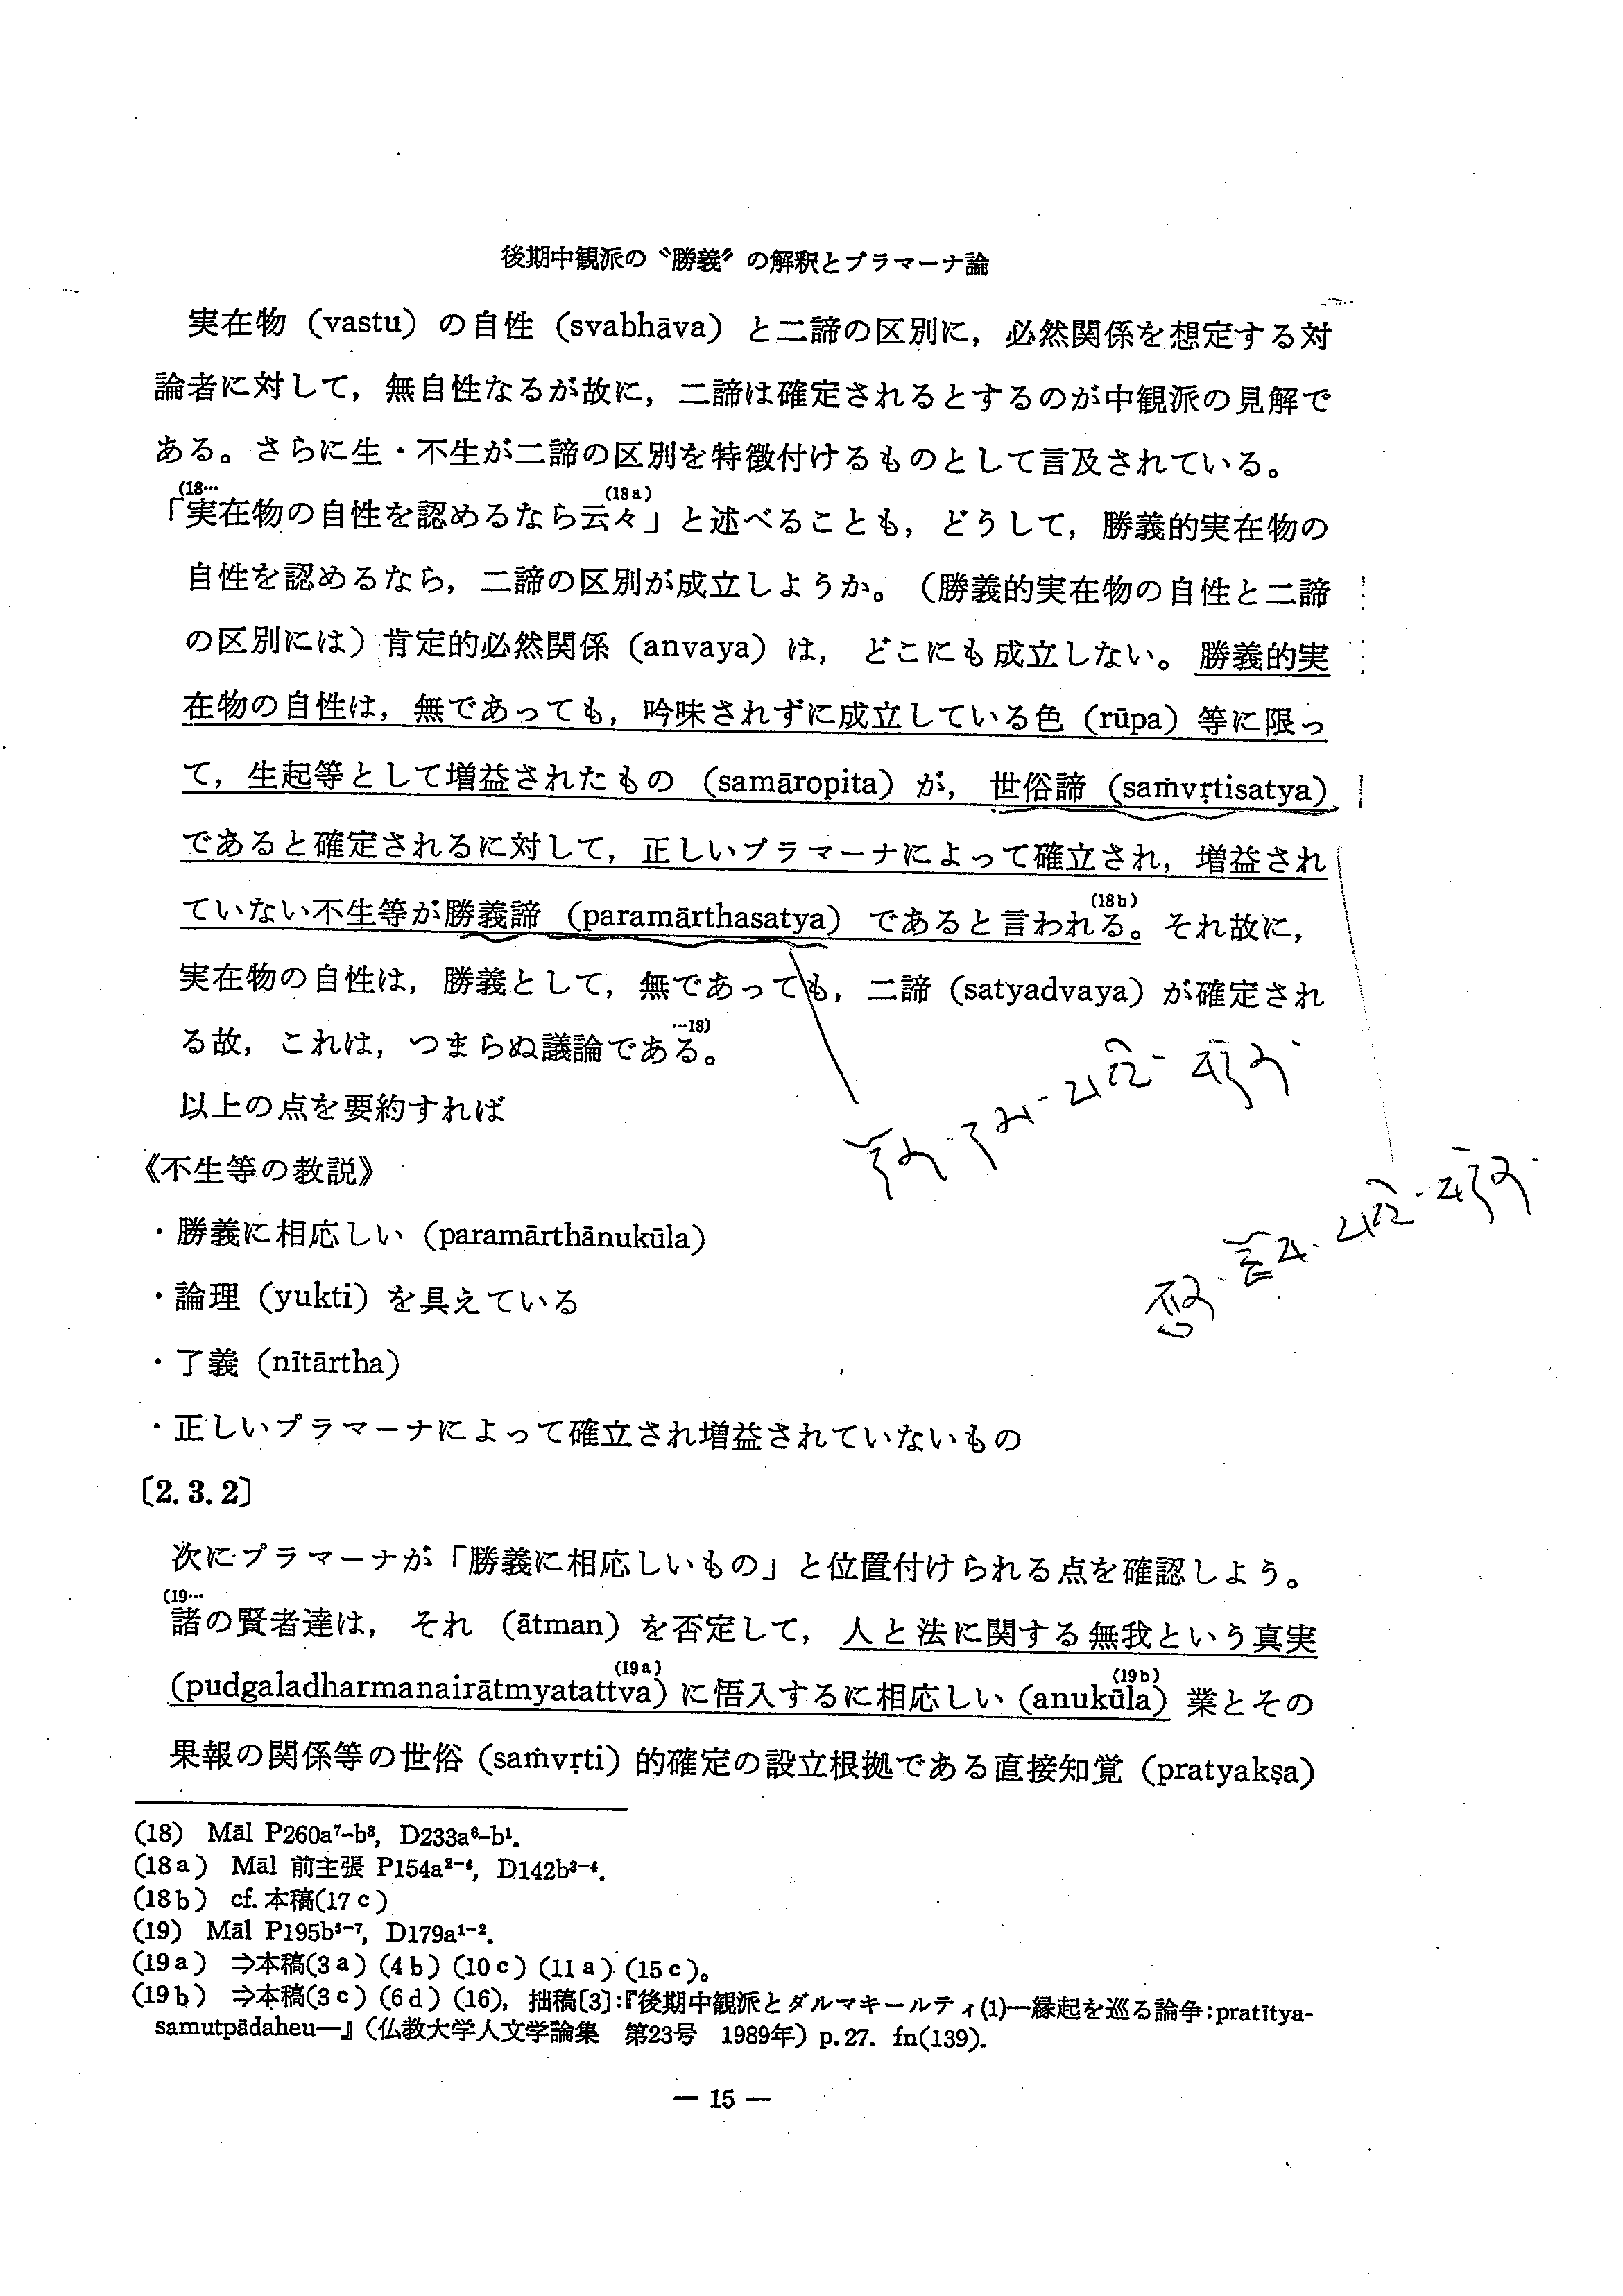 後期中観派の〝勝義〞の解釈とプラマーナ論
実在物（vastu）の自性（svabhāva）と二諦の区別に，必然関係を想定する対
論者に対して，無自性なるが故に，二諦は確定されるとするのが中観派の見解で
ある。さらに生・不生が二諦の区別を特徴付けるものとして言及されている。
(18…「実在物の自性を認めるなら云々」(18a)と述べることも，どうして，勝義的実在物の
自性を認めるなら，二諦の区別が成立しようか。（勝義的実在物の自性と二諦
の区別には）肯定的必然関係（anvaya）は，どこにも成立しない。勝義的実
在物の自性は，無であっても，吟味されずに成立している色（rūpa）等に限っ
て，生起等として増益されたもの（samāropita）が，世俗諦（saṁvṛtisatya）
であると確定されるに対して，正しいプラマーナによって確立され，増益され
ていない不生等が勝義諦（paramārthasatya）であると言われる。(18b)それ故に，
実在物の自性は，勝義として，無であっても，二諦（satyadvaya）が確定され
る故，これは，つまらぬ議論である。…18)
以上の点を要約すれば
《不生等の教説》
・勝義に相応しい（paramārthānukūla）
・論理（yukti）を具えている
・了義（nītārtha）
・正しいプラマーナによって確立され増益されていないもの
〔2.3.2〕
次にプラマーナが「勝義に相応しいもの」と位置付けられる点を確認しよう。
(19…諸の賢者達は，それ（ātman）を否定して，人と法に関する無我という真実
（pudgaladharmanairātmyatattva）(19a)に悟入するに相応しい（anukūla）(19b)業とその
果報の関係等の世俗（saṁvṛti）的確定の設立根拠である直接知覚（pratyakṣa）
(18) Māl P260a⁷-b⁸, D233a⁶-b¹.
(18a) Māl 前主張 P154a²⁻⁴, D142b³⁻⁴.
(18b) cf. 本稿(17c)
(19) Māl P195b⁵⁻⁷, D179a¹⁻².
(19a) ⇒本稿(3a)(4b)(10c)(11a)(15c)。
(19b) ⇒本稿(3c)(6d)(16)，拙稿〔3〕：『後期中観派とダルマキールティ(1)―縁起を巡る論争：pratītya-
samutpādaheu―』（仏教大学人文学論集　第23号　1989年）p.27. fn(139).
― 15 ―